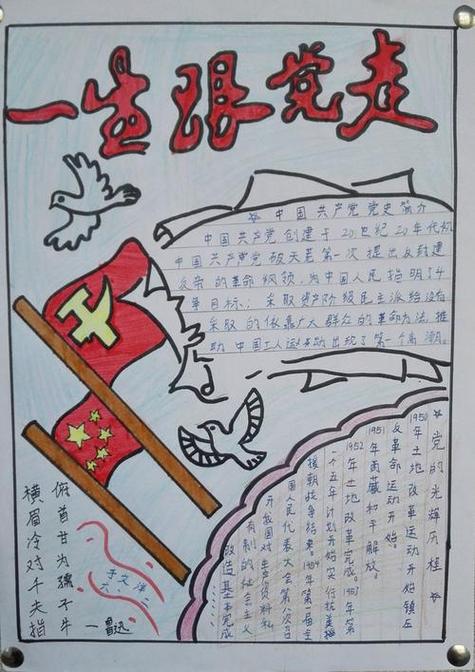 一生跟党走
☆ 中国共产党党史简介
中国共产党创建于20世纪20年代初
中国共产党破天荒第一次提出反封建
反帝的革命纲领，为中国人民指明了斗
争目标；采取资产阶级民主派给没有
采取的依靠广大群众的革命方法，推
助中国工人运动出现了第一个高潮。
☆党的光辉历程☆
1950年土地改革运动开始镇压
反革命运动开始。
1951年西藏和平解放。
1952年土地改革完成。1953年第
一个五年计划开始实行抗美
援朝战争结束。1954年第一届全
国人民代表大会第一次召
开我国对生产资料私
有制的社会主义
改造基本完成
俯首甘为孺子牛
横眉冷对千夫指
—鲁迅